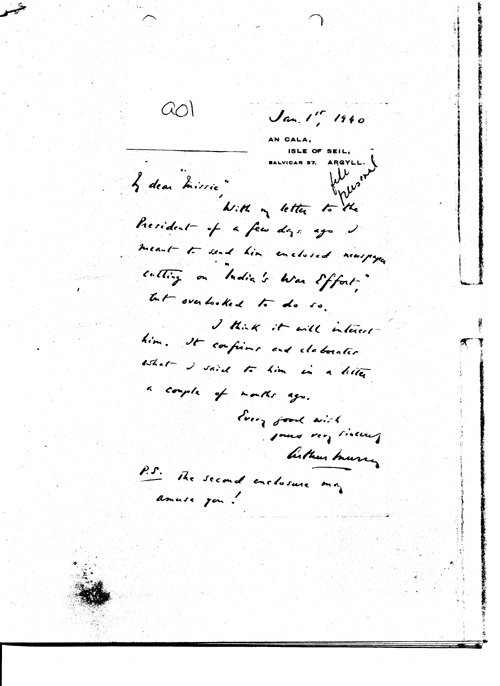 a01
Jan. 1st, 1940
AN CALA,
ISLE OF SEIL,
BALVICAR 37. ARGYLL.
file
personal
My dear "Missie",
With my letter to the
President of a few days ago I
meant to send him enclosed newspaper
cutting on "India's War Effort",
but overlooked to do so.
I think it will interest
him. It confirms and elaborates
what I said to him in a letter
a couple of months ago.
Every good wish
yours very sincerely
Arthur Murray
P.S. The second enclosure may
amuse you!